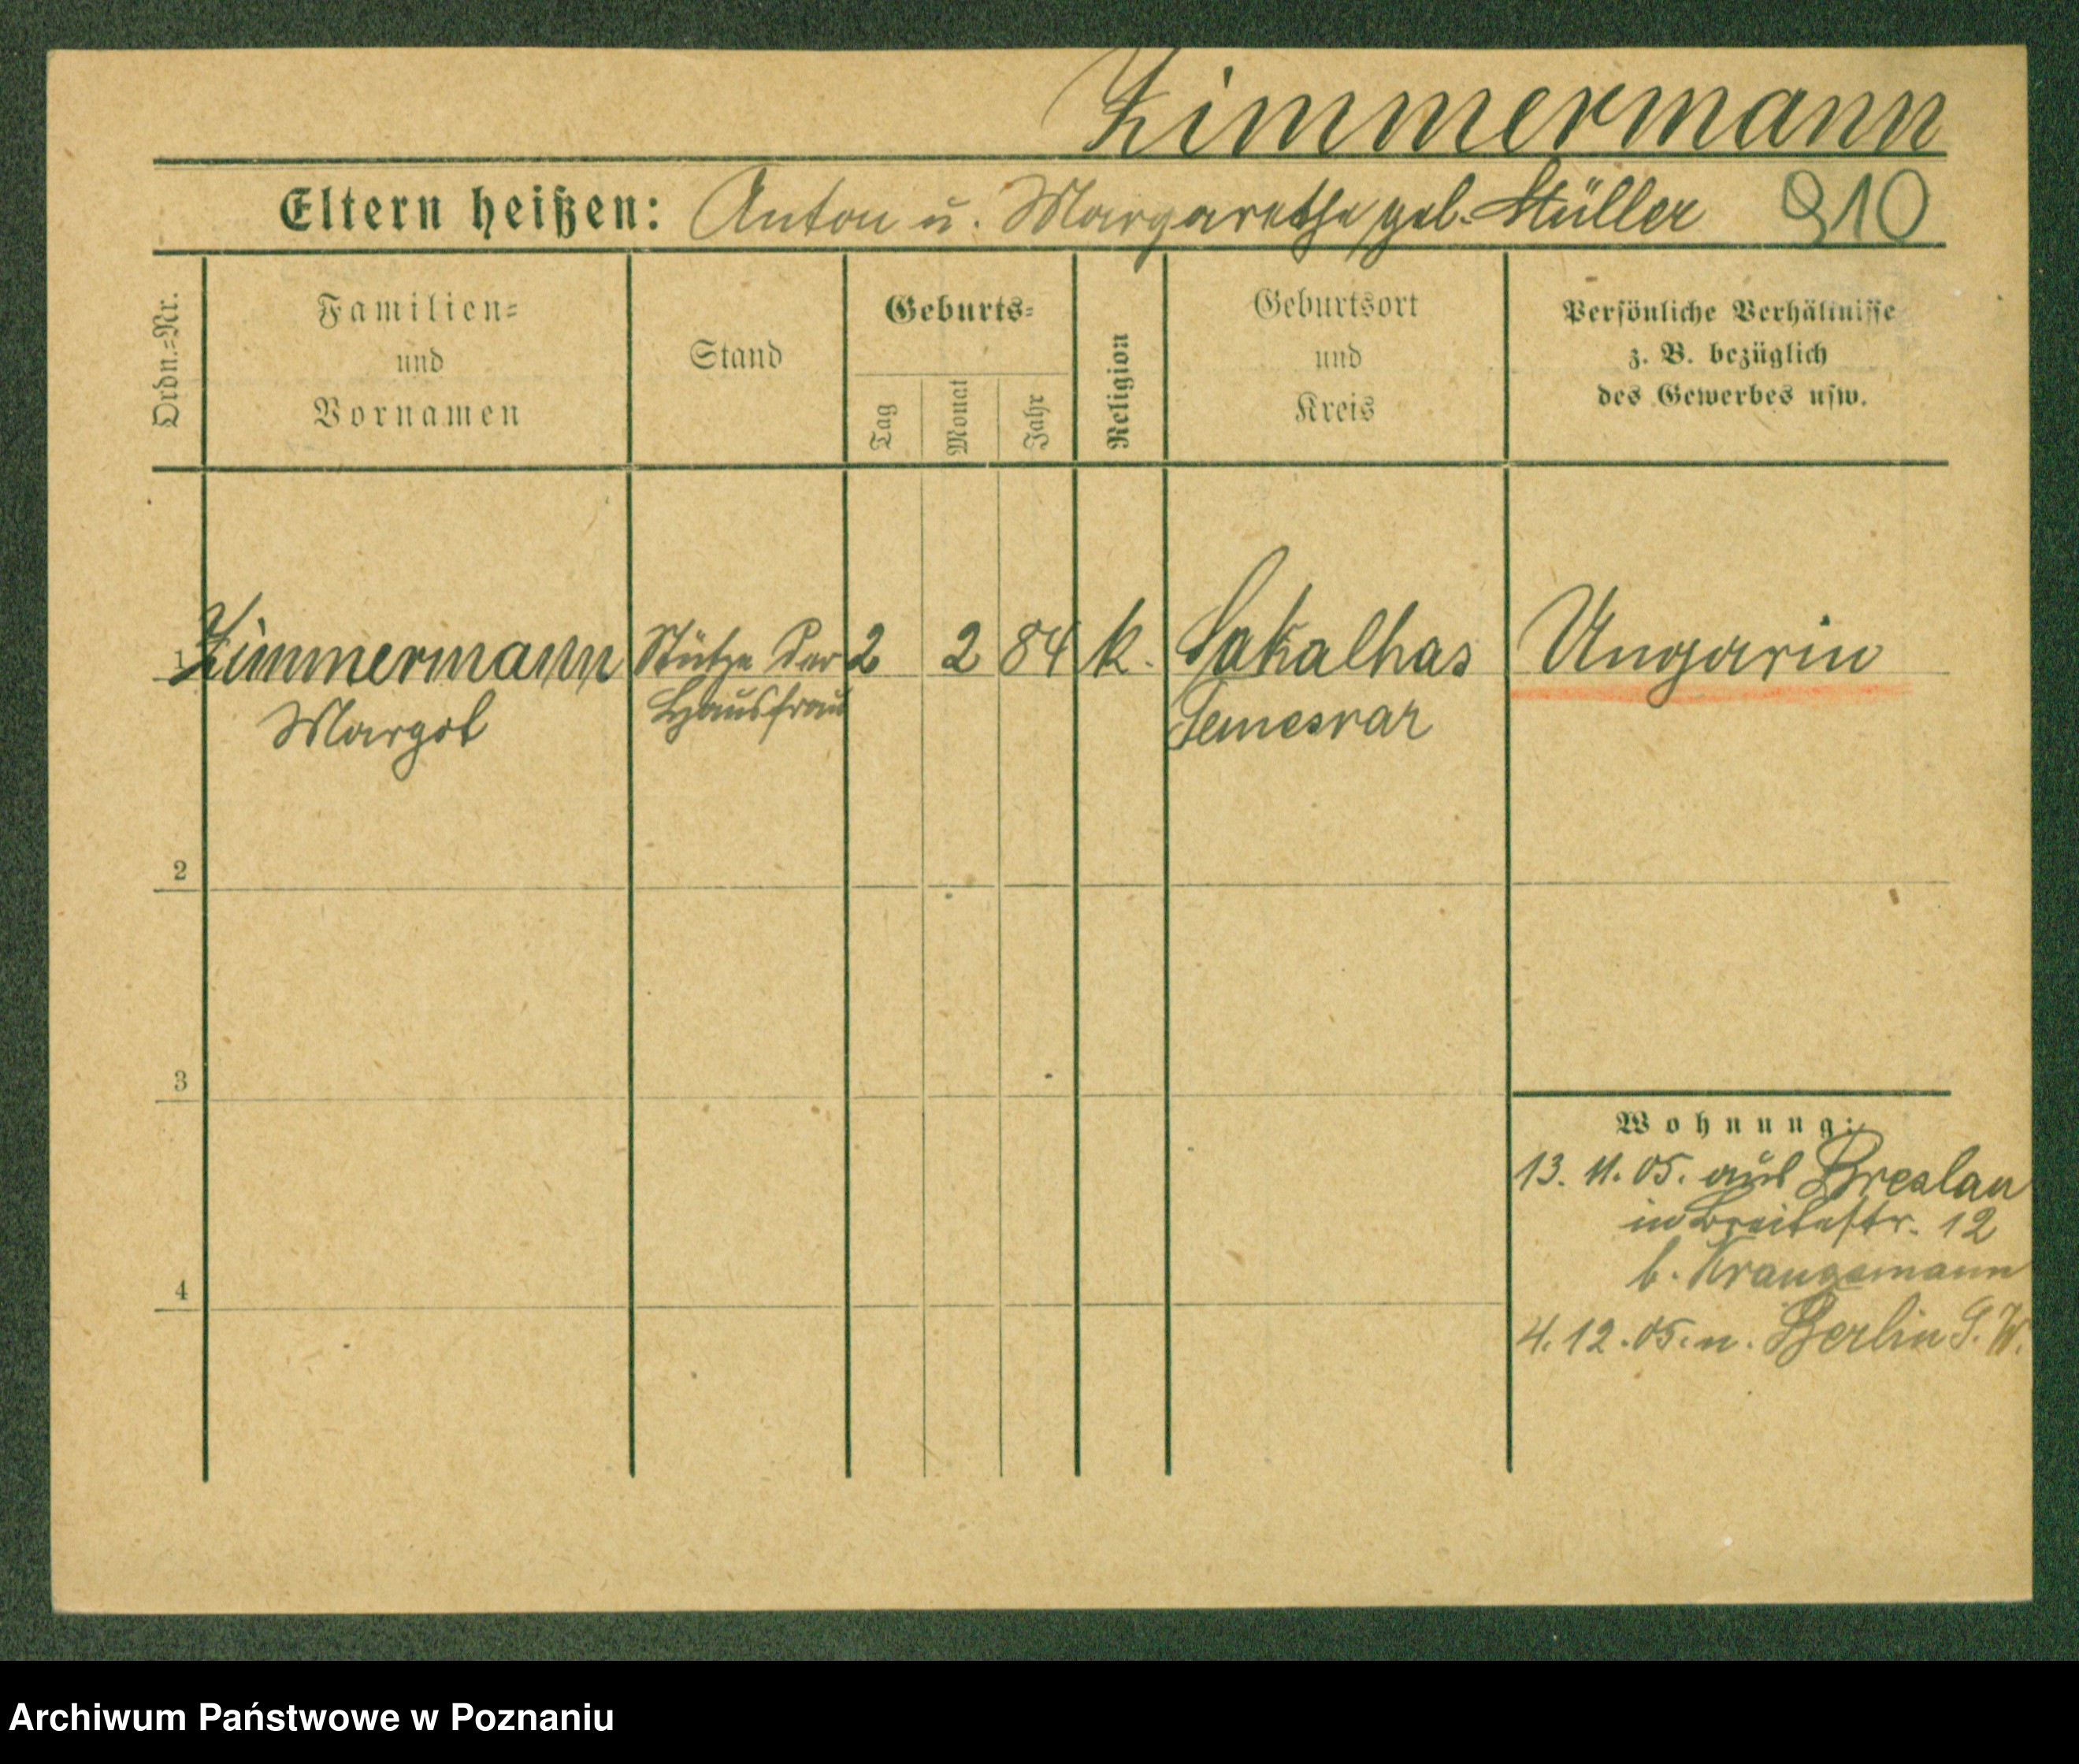 Zimmermann
Eltern heißen: Anton u. Margarethe geb. Müller 910
Ordn.=Nr.
Familien=
und
Vornamen
Stand
Geburts=
Tag
Monat
Jahr
Religion
Geburtsort
und
Kreis
Persönliche Verhältnisse
z. B. bezüglich
des Gewerbes usw.
1 Zimmermann Stütze der 2 2 84 k. Sakalhas Ungarin
Margot Hausfrau Temesvar
2
3
4
Wohnung:
13. 11. 05. aus Breslau
in Breitestr. 12
b.
4. 12. 05. n. Berlin S. W.
Archiwum Państwowe w Poznaniu